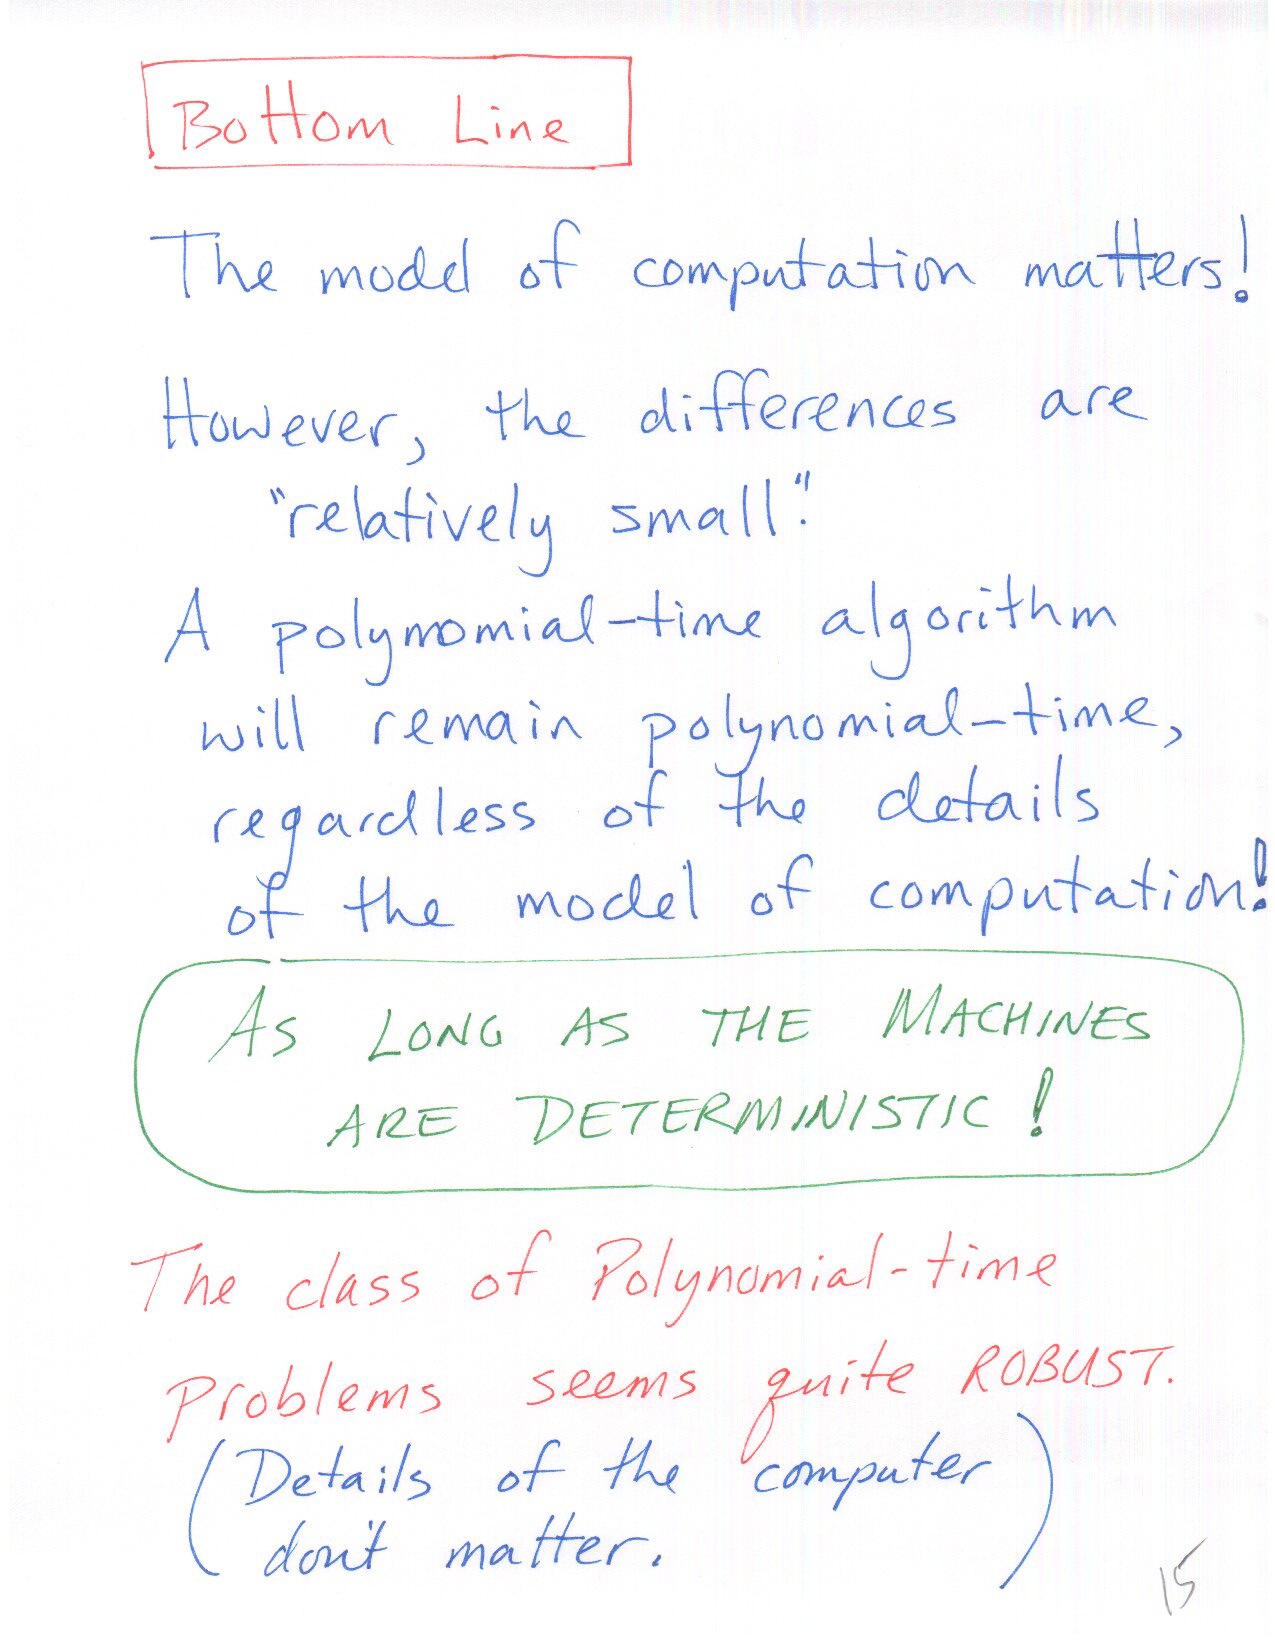 Bottom Line
The model of computation matters!
However, the differences are
"relatively small".
A polynomial-time algorithm
will remain polynomial-time,
regardless of the details
of the model of computation!
AS LONG AS THE MACHINES
ARE DETERMINISTIC!
The class of Polynomial-time
Problems seems quite ROBUST.
(Details of the computer
don't matter.)
15